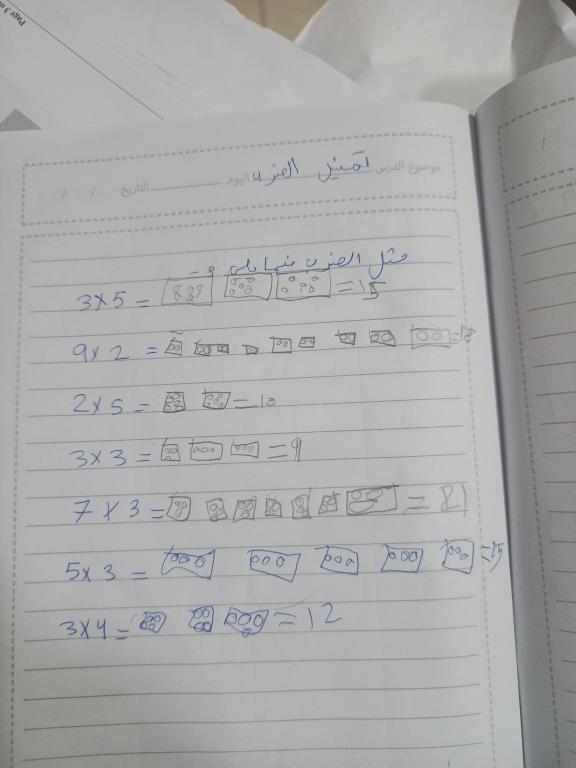 Page 3 o
موضوع الدرس تمثيل الضرب اليوم التاريخ
مثل الضرب فيما يلي :-
3x5 = =15
9x2 = =18
2x5 = =10
3x3 = =9
7x3 = =21
5x3 = =15
3x4 = =12